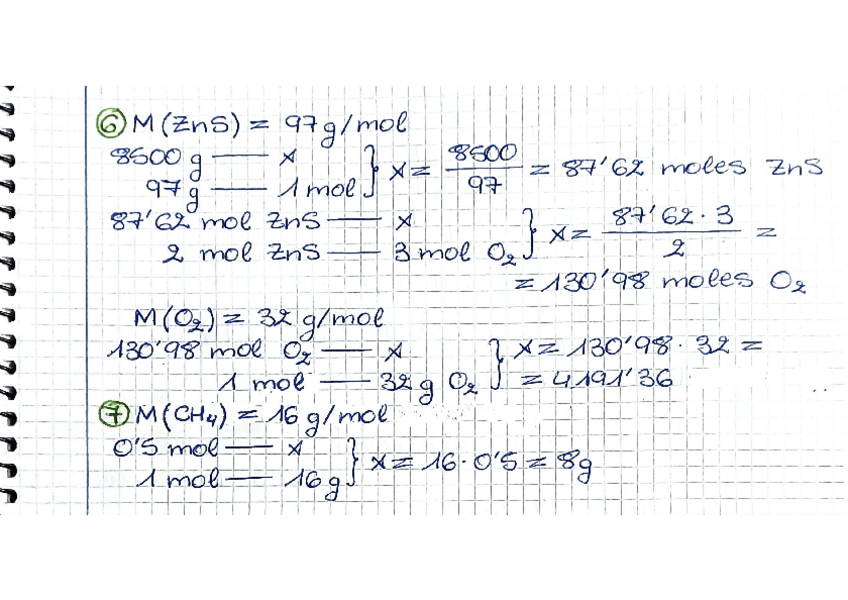 ⑥ M(ZnS) = 97g/mol
8500 g —— x } x = 8500/97 = 87'62 moles ZnS
97g —— 1 mol
87'62 mol ZnS —— x } x = 87'62 · 3/2 =
2 mol ZnS —— 3 mol O₂
= 130'98 moles O₂
M(O₂) = 32 g/mol
130'98 mol O₂ —— x } x = 130'98 · 32 =
1 mol —— 32g O₂ = 4191'36
⑦ M(CH₄) = 16 g/mol
0'5 mol —— x } x = 16 · 0'5 = 8g
1 mol —— 16g